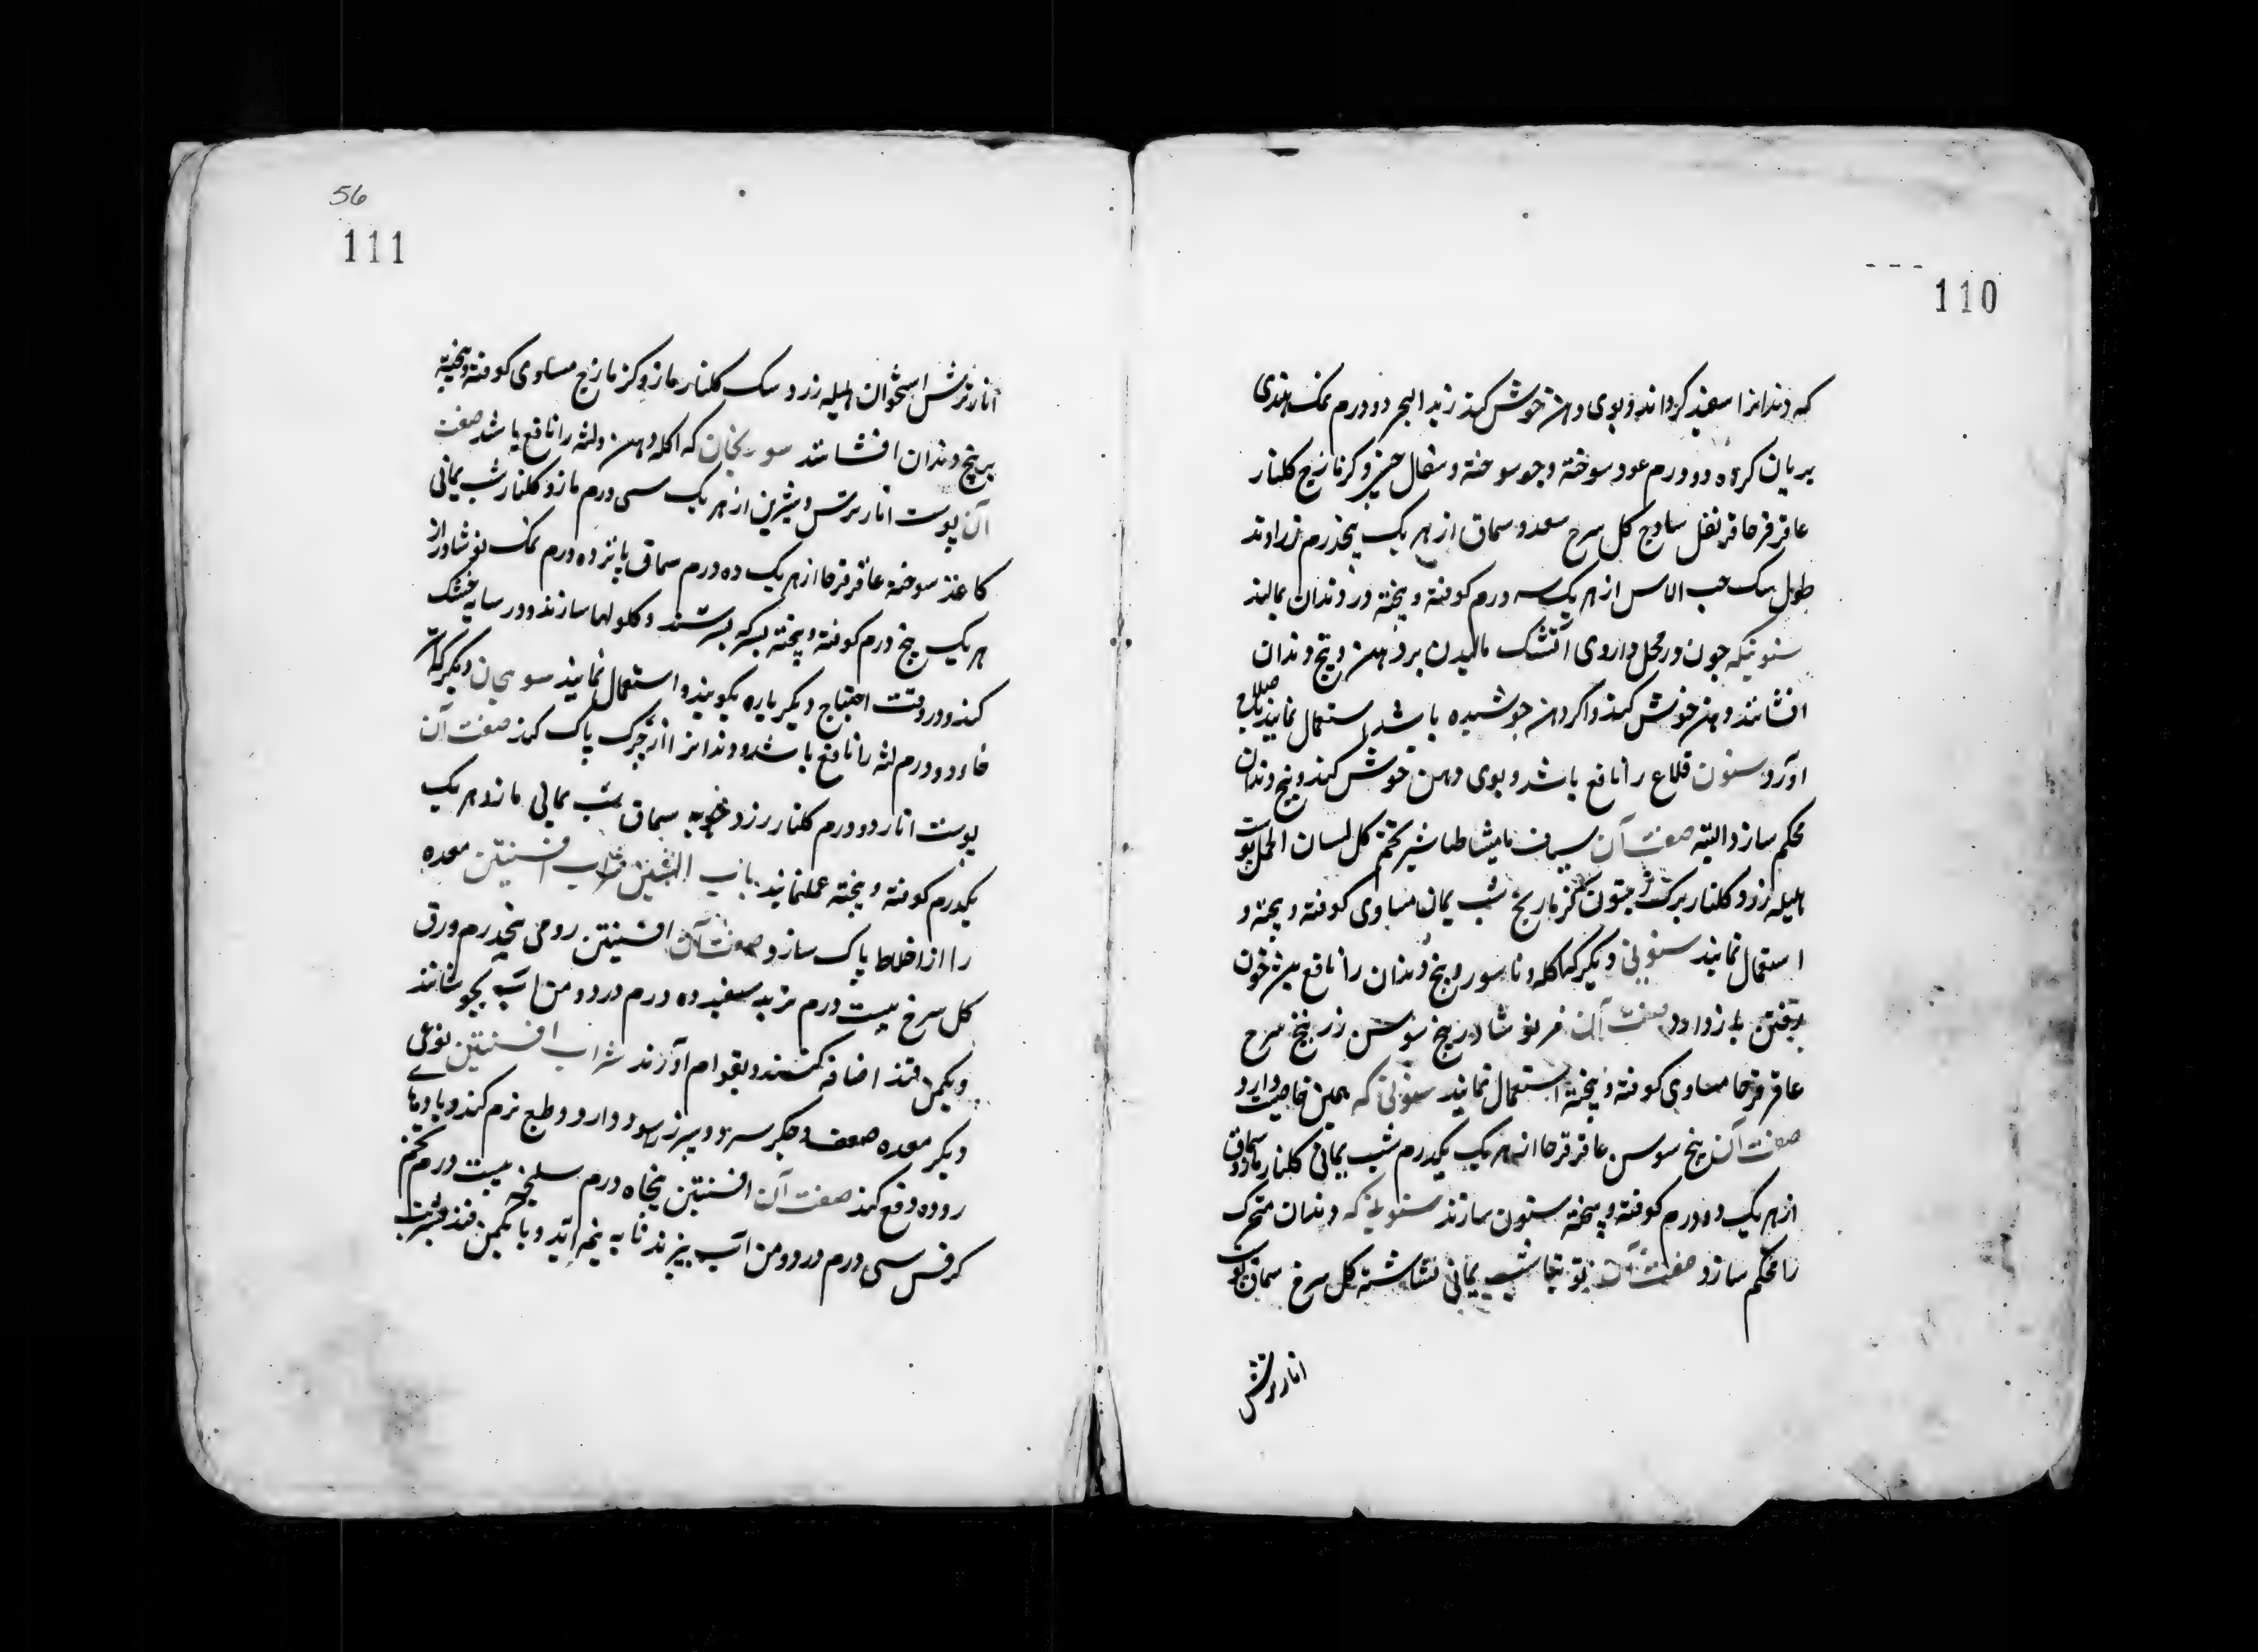 110
که دندانرا سفید کرداند و بوی دهن خوش کند زبد البحر دو درم نمک هندی
بریان کرده دو درم عود سوخته و جو سوخته و سفال چینی و کزمازج کلنار
عاقرقرحا قرنفل ساذج کل سرخ سعد و سماق از هر یک پنجدرم زراوند
طویل سک حب الاس از هر یک سه درم کوفته و پخته در دندان بمالند
سنونیکه چون در محل داروی آتشک مالیدن بر دهن و بیخ دندان
افشانند دهن خوش کند و اکر دهن جوشیده باشد استعمال نمایند بصلاح
اورد سنون قلاع را نافع باشد و بوی دهن خوش کند و بیخ دندان
محکم سازد البته صفت آن مامیثا طباشیر تخم کل لسان الحمل پوست
هلیله زرد کلنار برک زیتون کزمازج شب یمانی مساوی کوفته و پخته و
استعمال نمایند سنونی دیکر که اکله و ناسور و بیخ دندان را نافع بود خون
رفتن باز دارد صفت آن نوشادر بیخ سوسن زرنیخ سرخ
عاقرقرحا مساوی کوفته و پخته استعمال نمایند سنونی که همین خاصیت دارد
صفت آن بیخ سوسن عاقرقرحا از هر یک یکدرم شب یمانی کلنار مازو سماق
از هر یک ده درم کوفته و پخته سنون سازند سنونی که دندان متحرک
را محکم سازد صفت آن شب یمانی نشاشته کل سرخ سماق پوست
انار ترش
56
111
انار ترش استخوان هلیله زرد سک کلنار مازو کزمازج مساوی کوفته و پخته
بر بیخ دندان افشانند که اکله دهن و لثه را نافع باشد صفت
آن پوست انار ترش و شیرین از هر یک سی درم مازو کلنار شب یمانی
کاغذ سوخته عاقرقرحا از هر یک ده درم سماق پانزده درم نمک نوشادر از
هر یک پنج درم کوفته و پخته بسرکه بسرشند و کلولها سازند و در سایه خشک
کنند و در وقت احتیاج دیکر باره بکوبند و استعمال نمایند دیکر که
درم لثه را نافع باشد و دندانرا از چرک پاک کند صفت آن
پوست انار دو درم کلنار زرد چوبه سماق شب یمانی مازو هر یک
یکدرم کوفته و پخته عمل نمایند باب الشین شراب افسنتین معده
را از اخلاط پاک سازد صفت آن افسنتین رومی پنجدرم ورق
کل سرخ بیست درم تربد سفید ده درم در دو من آب بجوشانند
و یکمن قند اضافه کنند و بقوام آورند شراب افسنتین نوعی
دیکر معده ضعیف و جکر سرد و سپرز را سود دارد و طبع نرم کند و بادها
روده دفع کند صفت آن افسنتین پنجاه درم سلیخه بیست درم تخم
کرفس سی درم در دو من آب بپزند تا به نیمه آید و با یکمن قند شربت